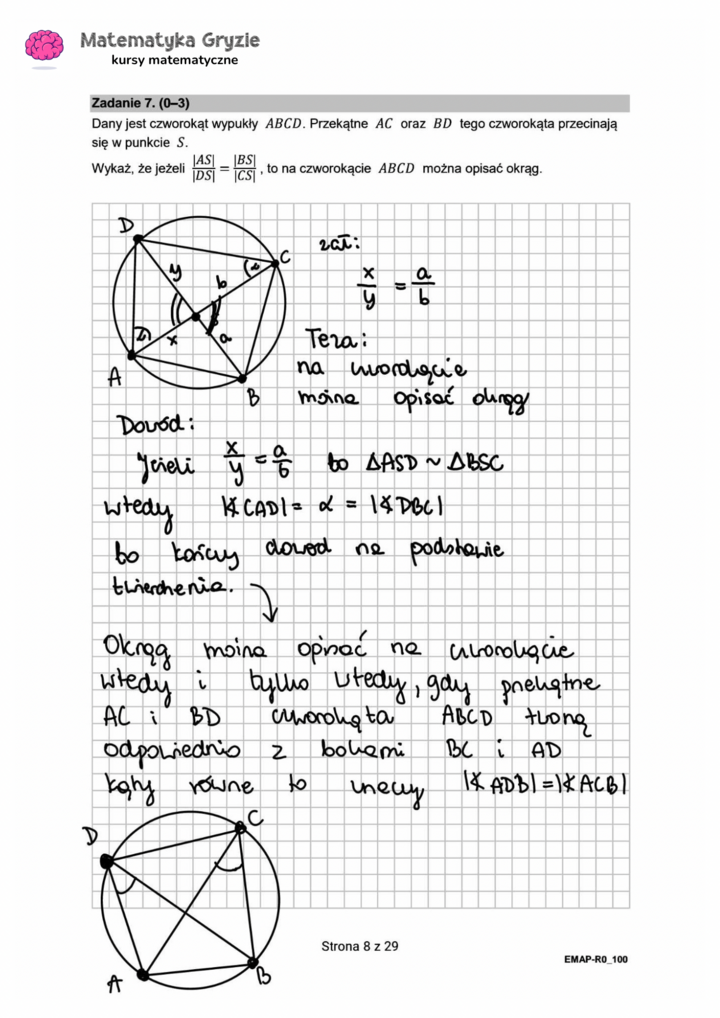 Matematyka Gryzie
kursy matematyczne
Zadanie 7. (0–3)
Dany jest czworokąt wypukły ABCD. Przekątne AC oraz BD tego czworokąta przecinają
się w punkcie S.
Wykaż, że jeżeli |AS|/|DS| = |BS|/|CS|, to na czworokącie ABCD można opisać okrąg.
D
C
y
b
α
x
a
A
B
zał:
x/y = a/b
Teza:
na czworokącie
można opisać okrąg
Dowód:
Jeżeli x/y = a/b to ΔASD ~ ΔBSC
wtedy |∢CAD| = α = |∢DBC|
to kończy dowód na podstawie
twierdzenia.
Okrąg można opisać na czworokącie
wtedy i tylko wtedy, gdy przekątne
AC i BD czworokąta ABCD tworzą
odpowiednio z bokami BC i AD
kąty równe to znaczy |∢ADB| = |∢ACB|
D
C
A
B
Strona 8 z 29
EMAP-R0_100